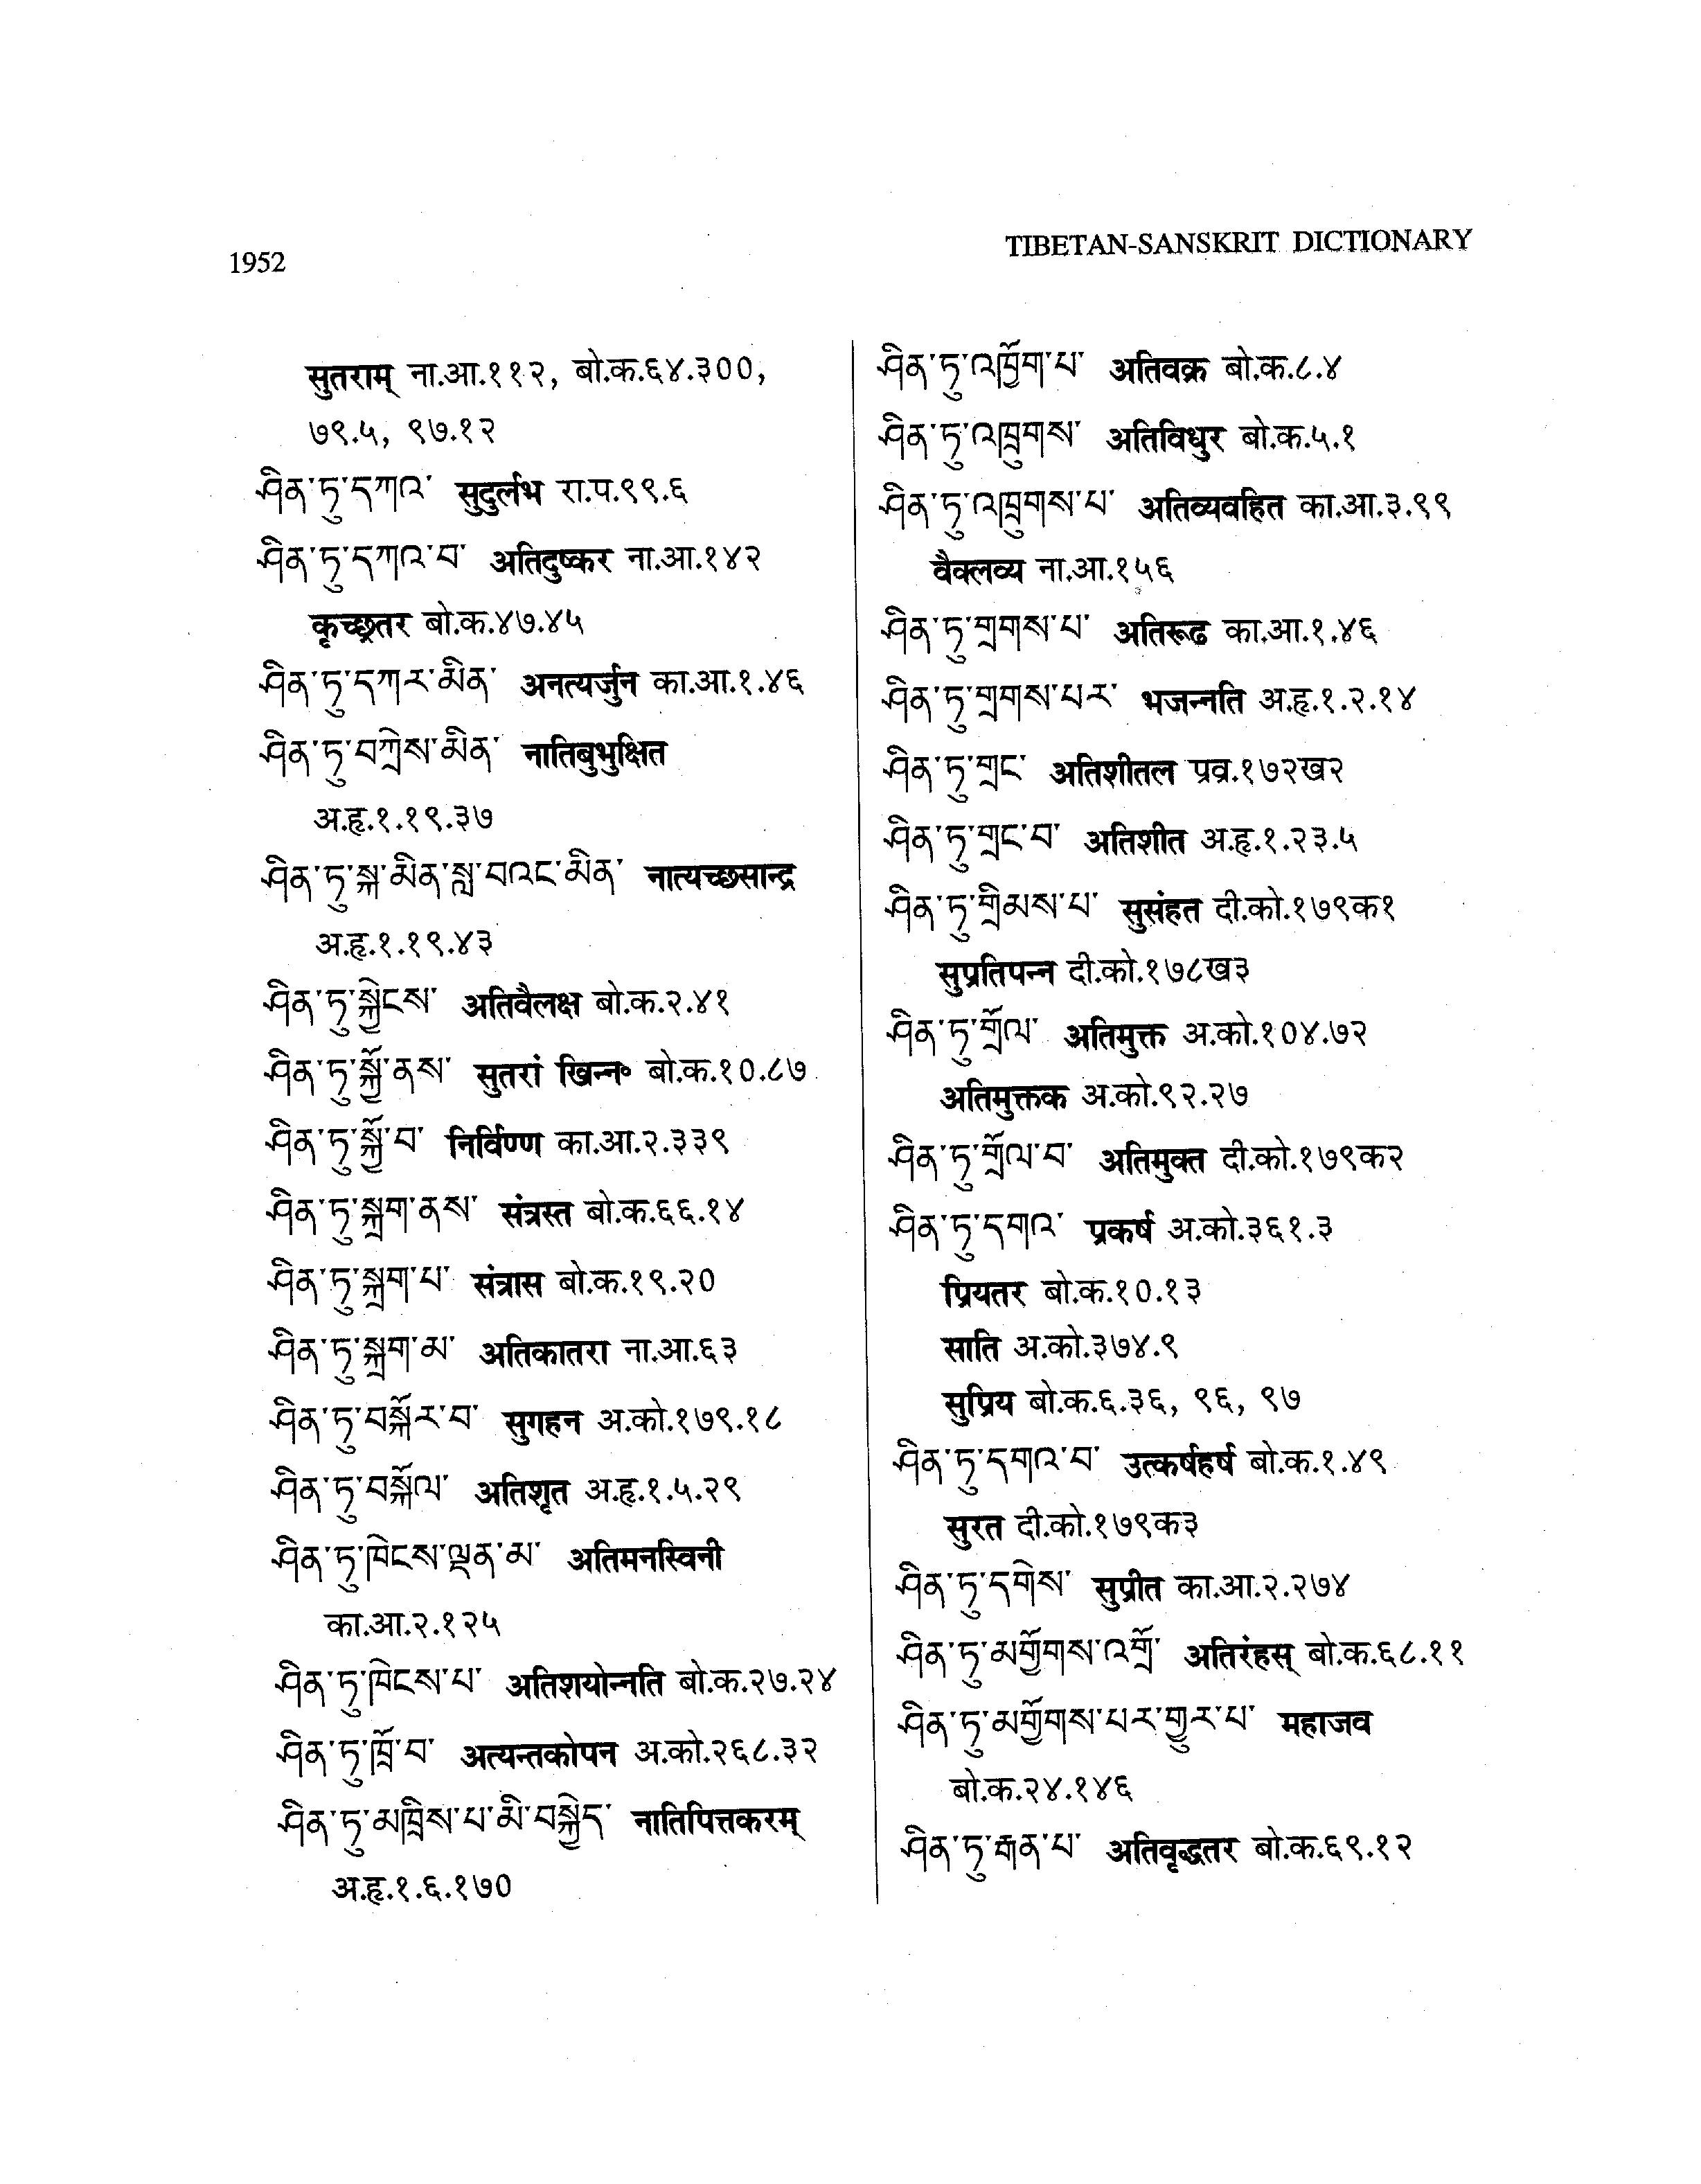 1952
TIBETAN-SANSKRIT DICTIONARY
सुतराम् ना.आ.११२, बो.क.६४.३००,
७९.५, ९७.१२
ཤིན་ཏུ་དཀའ་ सुदुर्लभ रा.प.९९.६
ཤིན་ཏུ་དཀའ་བ་ अतिदुष्कर ना.आ.१४२
कृच्छ्रतर बो.क.४७.४५
ཤིན་ཏུ་དཀར་མིན་ अनत्यर्जुन का.आ.१.४६
ཤིན་ཏུ་བཀྲེས་མིན་ नातिबुभुक्षित
अ.हृ.१.१९.३७
ཤིན་ཏུ་སྐ་མིན་སླ་བའང་མིན་ नात्यच्छसान्द्र
अ.हृ.१.१९.४३
ཤིན་ཏུ་སྐྱེངས་ अतिवैलक्ष बो.क.२.४१
ཤིན་ཏུ་སྐྱོ་ནས་ सुतरां खिन्न॰ बो.क.१०.८७
ཤིན་ཏུ་སྐྱོ་བ་ निर्विण्ण का.आ.२.३३९
ཤིན་ཏུ་སྐྲག་ནས་ संत्रस्त बो.क.६६.१४
ཤིན་ཏུ་སྐྲག་པ་ संत्रास बो.क.१९.२०
ཤིན་ཏུ་སྐྲག་མ་ अतिकातरा ना.आ.६३
ཤིན་ཏུ་བསྐོར་བ་ सुगहन अ.को.१७९.१८
ཤིན་ཏུ་བསྐོལ་ अतिशृत अ.हृ.१.५.२९
ཤིན་ཏུ་ཁེངས་ལྡན་མ་ अतिमनस्विनी
का.आ.२.१२५
ཤིན་ཏུ་ཁེངས་པ་ अतिशयोन्नति बो.क.२७.२४
ཤིན་ཏུ་ཁྲོ་བ་ अत्यन्तकोपन अ.को.२६८.३२
ཤིན་ཏུ་མཁྲིས་པ་མི་བསྐྱེད་ नातिपित्तकरम्
अ.हृ.१.६.१७०
ཤིན་ཏུ་འཁྱོག་པ་ अतिवक्र बो.क.८.४
ཤིན་ཏུ་འཁྲུགས་ अतिविधुर बो.क.५.१
ཤིན་ཏུ་འཁྲུགས་པ་ अतिव्यवहित का.आ.३.९९
वैक्लव्य ना.आ.१५६
ཤིན་ཏུ་གྲགས་པ་ अतिरूढ का.आ.१.४६
ཤིན་ཏུ་གྲགས་པར་ भजन्नति अ.हृ.१.२.१४
ཤིན་ཏུ་གྲང་ अतिशीतल प्रव्र.१७२ख२
ཤིན་ཏུ་གྲང་བ་ अतिशीत अ.हृ.१.२३.५
ཤིན་ཏུ་གྲིམས་པ་ सुसंहत दी.को.१७९क१
सुप्रतिपन्न दी.को.१७८ख३
ཤིན་ཏུ་གྲོལ་ अतिमुक्त अ.को.१०४.७२
अतिमुक्तक अ.को.९२.२७
ཤིན་ཏུ་གྲོལ་བ་ अतिमुक्त दी.को.१७९क२
ཤིན་ཏུ་དགའ་ प्रकर्ष अ.को.३६१.३
प्रियतर बो.क.१०.१३
साति अ.को.३७४.९
सुप्रिय बो.क.६.३६, ९६, ९७
ཤིན་ཏུ་དགའ་བ་ उत्कर्षहर्ष बो.क.१.४९
सुरत दी.को.१७९क३
ཤིན་ཏུ་དགེས་ सुप्रीत का.आ.२.२७४
ཤིན་ཏུ་མགྱོགས་འགྲོ་ अतिरंहस् बो.क.६८.११
ཤིན་ཏུ་མགྱོགས་པར་གྱུར་པ་ महाजव
बो.क.२४.१४६
ཤིན་ཏུ་རྒན་པ་ अतिवृद्धतर बो.क.६९.१२